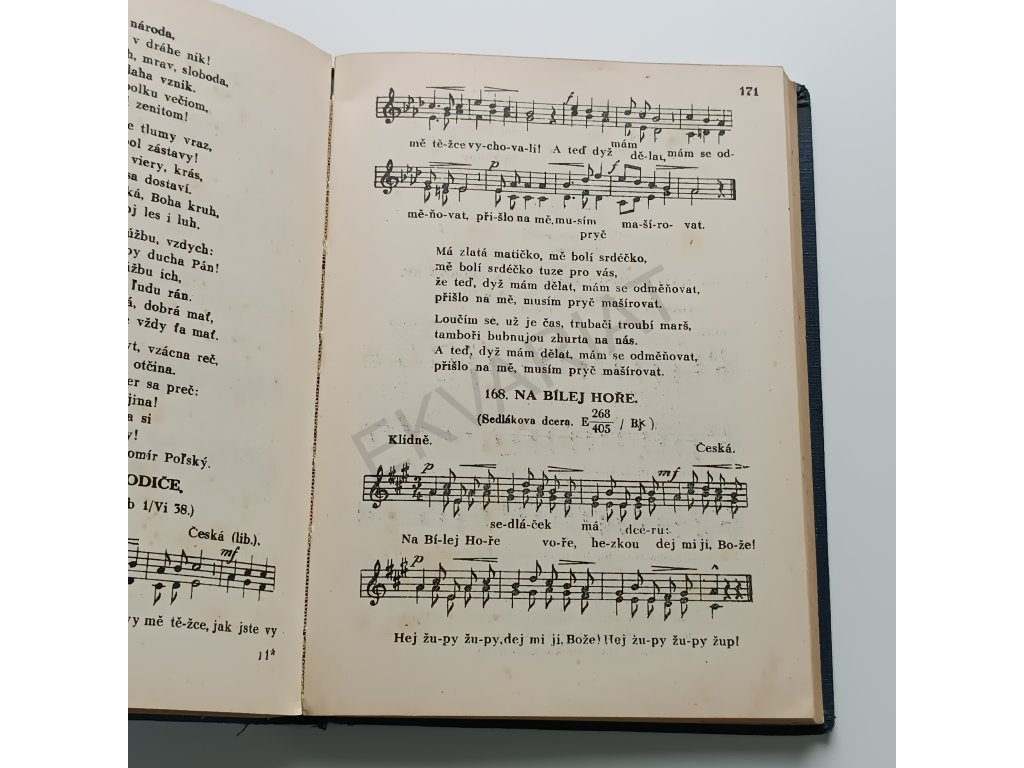 národa,
v dráhe nik!
mrav, sloboda,
vznik.
večiom,
zenitom!
tlumy vraz,
zástavy!
viery, krás,
sa dostaví.
Boha kruh,
les i luh.
vzdych:
ducha Pán!
ich,
ľudu rán.
dobrá mať,
vždy ťa mať.
vzácna reč,
otčina.
sa preč:
a si
Poľský.
1/Vi 38.)
Česká (lib.).
mf
mě tě-žce, jak jste vy
11*
171
f
mám
mě tě-žce vy-cho-va-li! A teď dyž dě-lat, mám se od-
p f
mě-ňo-vat, při-šlo na mě, mu-sím ma-ší-ro- vat.
pryč
Má zlatá matičko, mě bolí srdéčko,
mě bolí srdéčko tuze pro vás,
že teď, dyž mám dělat, mám se odměňovat,
přišlo na mě, musím pryč mašírovat.
Loučím se, už je čas, trubači troubí marš,
tamboři bubnujou zhurta na nás.
A teď, dyž mám dělat, mám se odměňovat,
přišlo na mě, musím pryč mašírovat.
168. NA BÍLEJ HOŘE.
(Sedlákova dcera. E 268/405 / Bk)
Klidně.
Česká.
p mf
3/4
se-dlá-ček má dce-ru:
Na Bí-lej Ho-ře vo-ře, he-zkou dej mi ji, Bo-že!
p
Hej žu-py žu-py, dej mi ji, Bože! Hej žu-py žu-py žup!
EKVARIAT